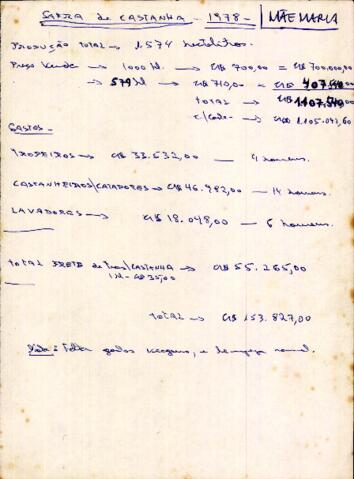 SAFRA de CASTANHA - 1978 - MÃE MARIA
PRODUÇÃO TOTAL → 1.574 hectolitros.
Preço Venda → 1000 hl → CR$ 700,00 = CR$ 700.000,00
→ 574 hl → CR$ 710,00 = CR$ 407.540,00
TOTAL → CR$ 1.107.540,00
→ CR$ 1.105.042,60
GASTOS -
TROPEIROS → CR$ 33.532,00 — 4 homens.
CASTANHEIROS/CATADORES → CR$ 46.982,00 — 14 homens.
LAVADORES → CR$ 18.048,00 — 6 homens.
TOTAL FRETE de CASTANHA → CR$ 55.265,00
CR$ 35,00
TOTAL → CR$ 153.827,00
gastos e